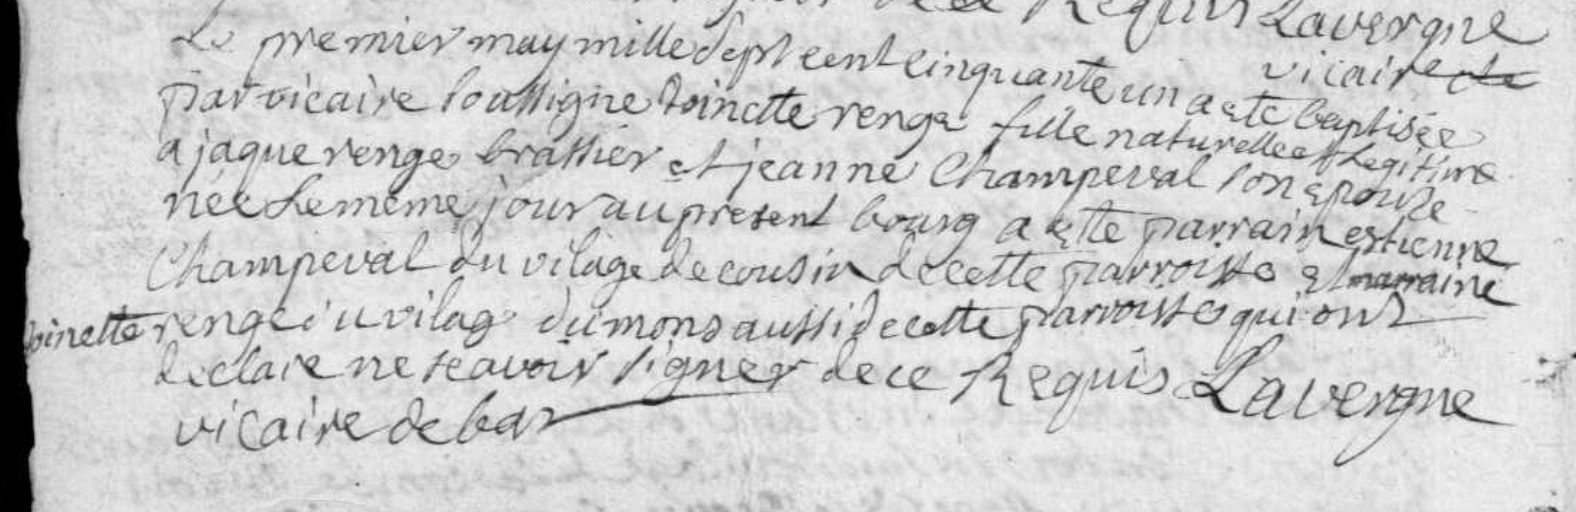 Requis Lavergne
vicaire
Le premier may mille sept cent cinquante un a ete baptisée
par vicaire soussigne toinette renge fille naturelle et legitime
a jaque renge brassier et jeanne Champeval son epouse
née le meme jour au present bourg a ette parrain estienne
Champeval du vilage de cousin de cette parroisse et marraine
toinette renge du vilage du mons aussi de cette parroisse qui ont
declare ne scavoir signer de ce Requis Lavergne
vicaire de bar